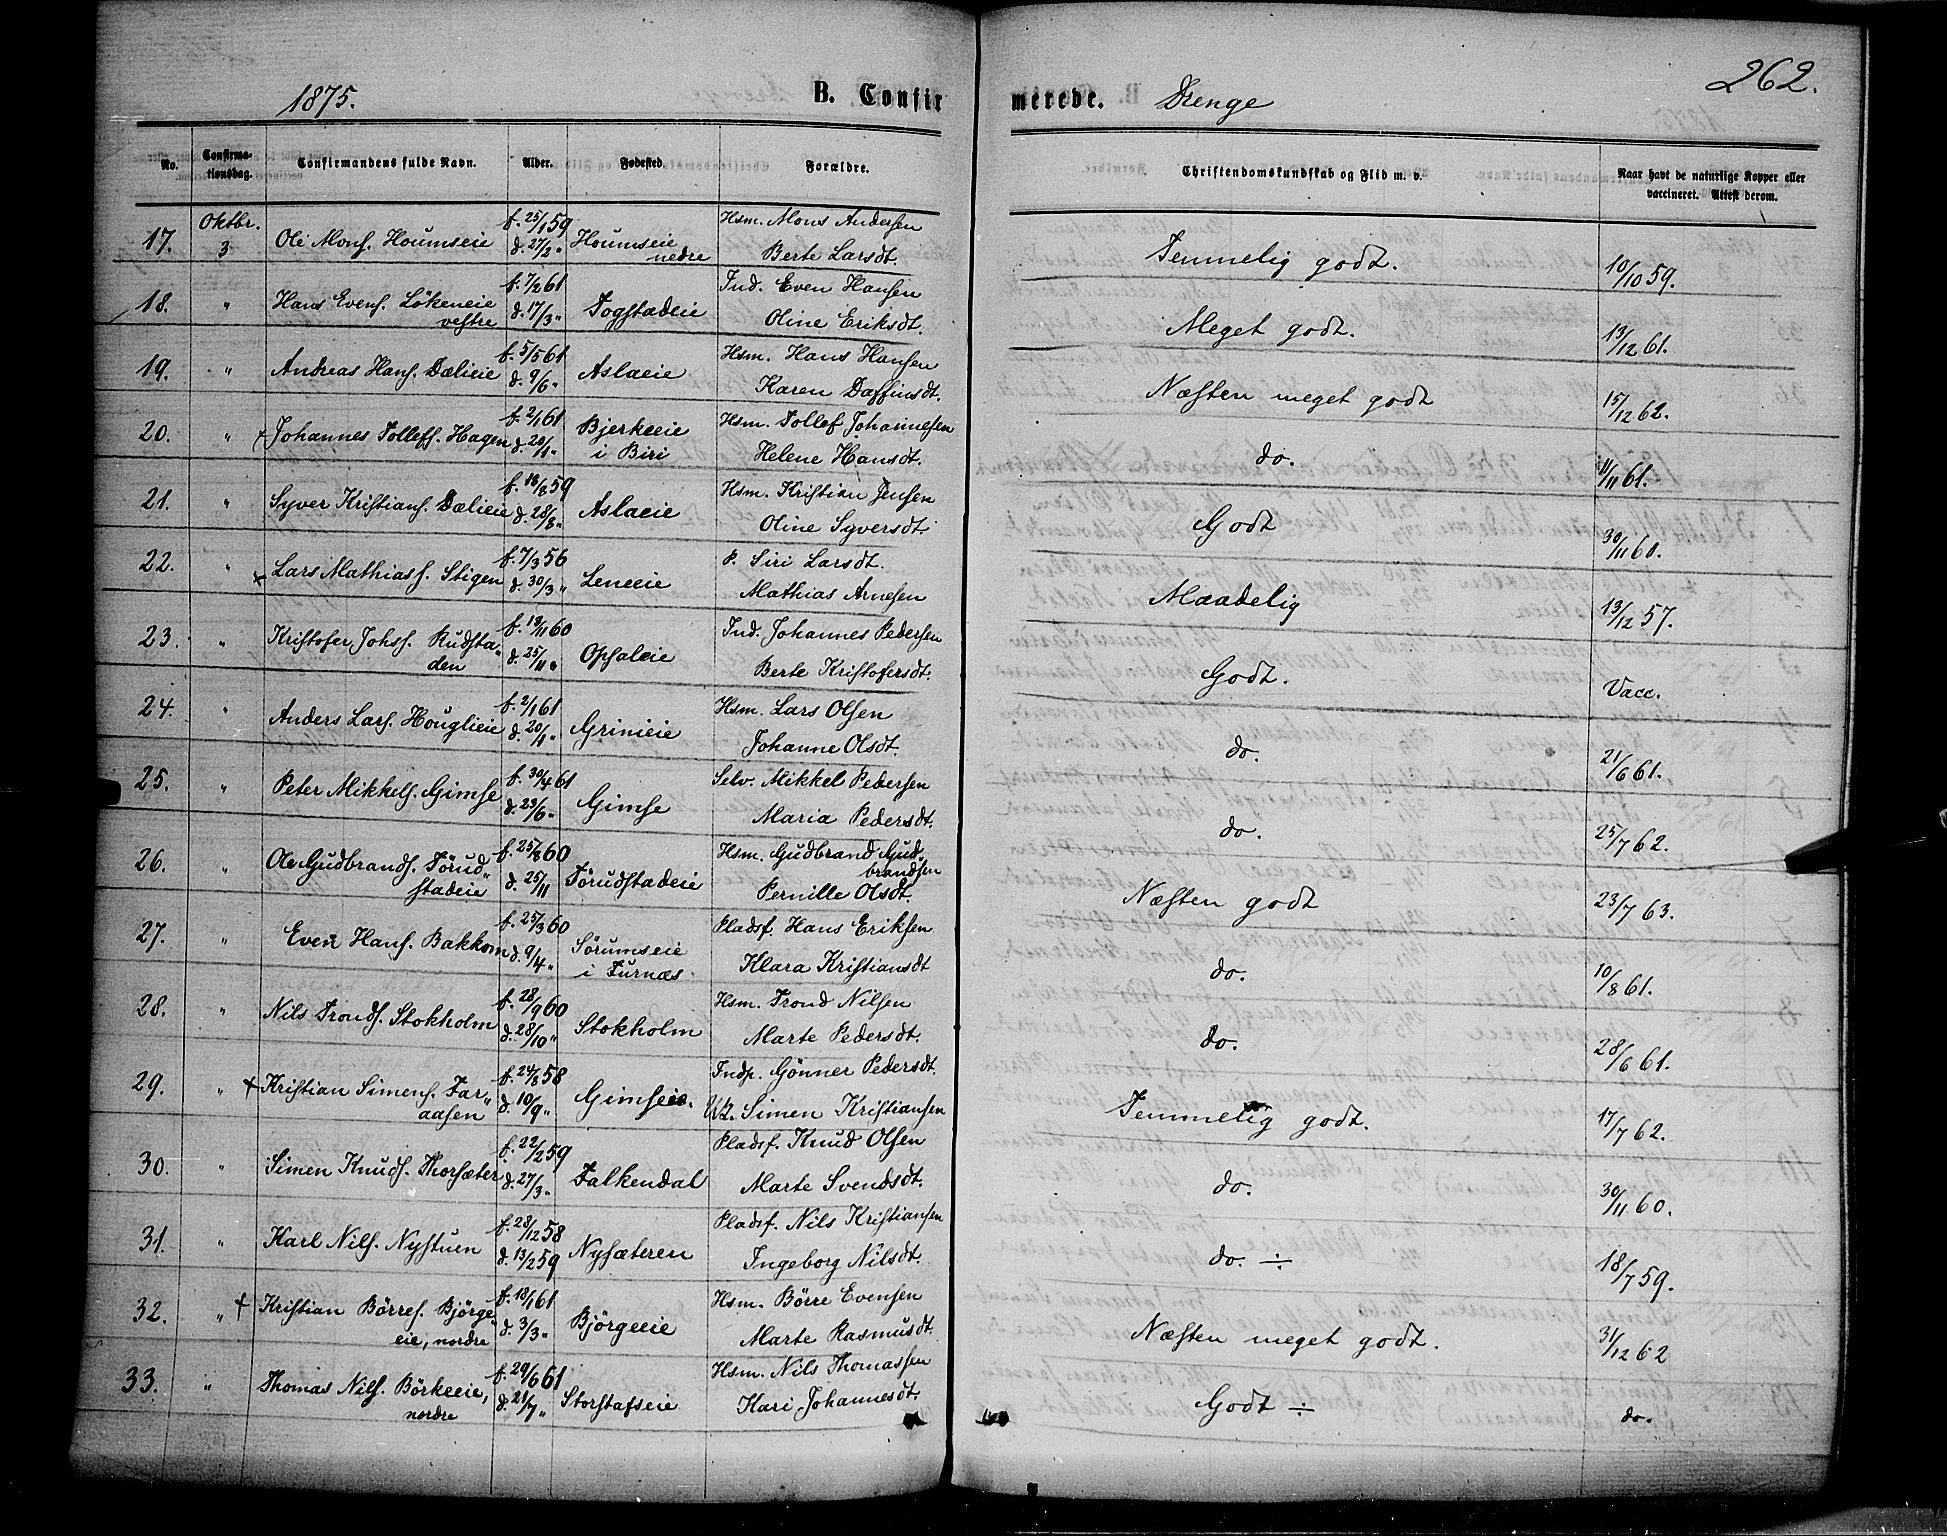 1875. B. Confirmerede. Drenge 262.
No. Confirmationsdag. Confirmandens fulde Navn. Alder. Fødested. Forældre. Christendomskundskab og Flid m. v. Naar havt de naturlige Kopper eller vaccineret. Attest derom.
17. Oktbr. 3 Ole Mons. Houmseie f. 25/1 59 d. 27/2 " Houmseie nedre Hsm. Mons Andersen Berte Larsdt. Temmelig godt. 10/10 59.
18. " Hans Evens. Lökeneie vestre f. 7/2 61 d. 17/3 " Togstadeie Ind. Even Hansen Oline Eriksdt. Meget godt. 13/12 61.
19. " Andreas Hans. Dælieie f. 5/5 61 d. 9/6 " Aslaeie Hsm. Hans Hansen Karen Daffinsdt. Næsten meget godt 15/12 62.
20. " Johannes Tollefs. Hagen f. 2/1 61 d. 20/1 " Bjerkeeie i Biri Hsm. Tollef Johannesen Helene Hansdt. do. 11/11 61.
21. " Syver Kristians. Dælieie f. 18/8 59 d. 28/8 " Aslaeie Hsm. Kristian Jensen Oline Syversdt. Godt 30/11 60.
22. " Lars Mathiass. Stigen f. 7/3 56 d. 30/3 " Leneeie P. Siri Larsdt. Mathias Arnesen Maadelig 13/12 57.
23. " Kristofer Johs. Rudstaden f. 18/11 60 d. 25/11 " Opsaleie Ind. Johannes Pedersen Berte Kristofersdt. Godt. Vacc.
24. " Anders Lars. Houglieie f. 2/1 61 d. 20/1 " Grinieie Hsm. Lars Olsen Johanne Olsdt. do. 21/6 61.
25. " Peter Mikkels. Gimse f. 30/4 61 d. 23/6 " Gimse Selv. Mikkel Pedersen Maria Pedersdt. do. 25/7 62.
26. " Ole Gudbrands. Törudstadeie f. 25/8 60 d. 25/11 Törudstadeie Hsm. Gudbrand Gudbrandsen Pernille Olsdt. Næsten godt 23/7 63.
27. " Even Hans. Bakkom f. 25/3 60 d. 9/4 " Sörumseie i Furnæs. Pladsf. Hans Eriksen Klara Kristiansdt do. 10/8 61.
28. " Nils Tronds. Stokholm f. 28/9 60 d. 28/10 " Stokholm Hsm. Trond Nilsen Marte Pedersdt. do. 28/6 61.
29. " Kristian Simens. Faraasen f. 24/8 58 d. 10/9 " Gimseie. Indp. Gönner Pedersdt. Simen Kristiansen Temmelig godt. 17/7 62.
30. " Simen Knuds. Thorsæter f. 22/2 59 d. 27/3 " Falkendal Pladsf. Knud Olsen Marte Svendsdt. do. 30/11 60.
31. " Karl Nils. Nystuen f. 28/12 58 d. 13/2 59 Nysæteren Pladsf. Nils Kristiansen Ingeborg Nilsdt. do. ÷ 18/7 59.
32. " Kristian Börres. Björgeeie, nordre f. 18/1 61 d. 3/3 " Björgeeie Hsm. Börre Evensen Marte Rasmusdt. Næsten meget godt. 31/12 62
33. " Thomas Nils. Börkeeie, nordre f. 29/6 61 d. 21/7 " Storstafseie Hsm. Nils Thomassen Kari Johannesdt. Godt ÷ do.